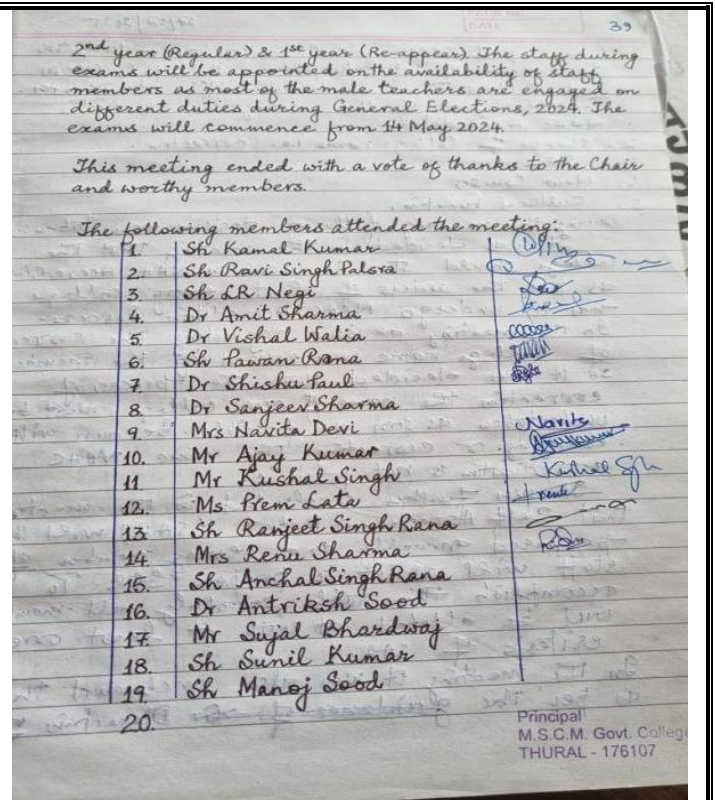 39
2nd year (Regular) & 1st year (Re-appear). The staff during
exams will be appointed on the availability of staff
members as most of the male teachers are engaged on
different duties during General Elections, 2024. The
exams will commence from 14 May 2024.
This meeting ended with a vote of thanks to the Chair
and worthy members.
The following members attended the meeting:
1. Sh Kamal Kumar
2. Sh Ravi Singh Palsra
3. Sh LR Negi
4. Dr Amit Sharma
5. Dr Vishal Walia
6. Sh Pawan Rana
7. Dr Shishu Paul
8. Dr Sanjeev Sharma
9. Mrs Navita Devi Navita
10. Mr Ajay Kumar Ajay Kumar
11 Mr Kushal Singh Kushal Sgh
12. Ms Prem Lata
13 Sh Ranjeet Singh Rana
14 Mrs Renu Sharma
15. Sh Anchal Singh Rana
16. Dr Antriksh Sood
17 Mr Sujal Bhardwaj
18 Sh Sunil Kumar
19 Sh Manoj Sood
20.
Principal
M.S.C.M. Govt. College
THURAL - 176107